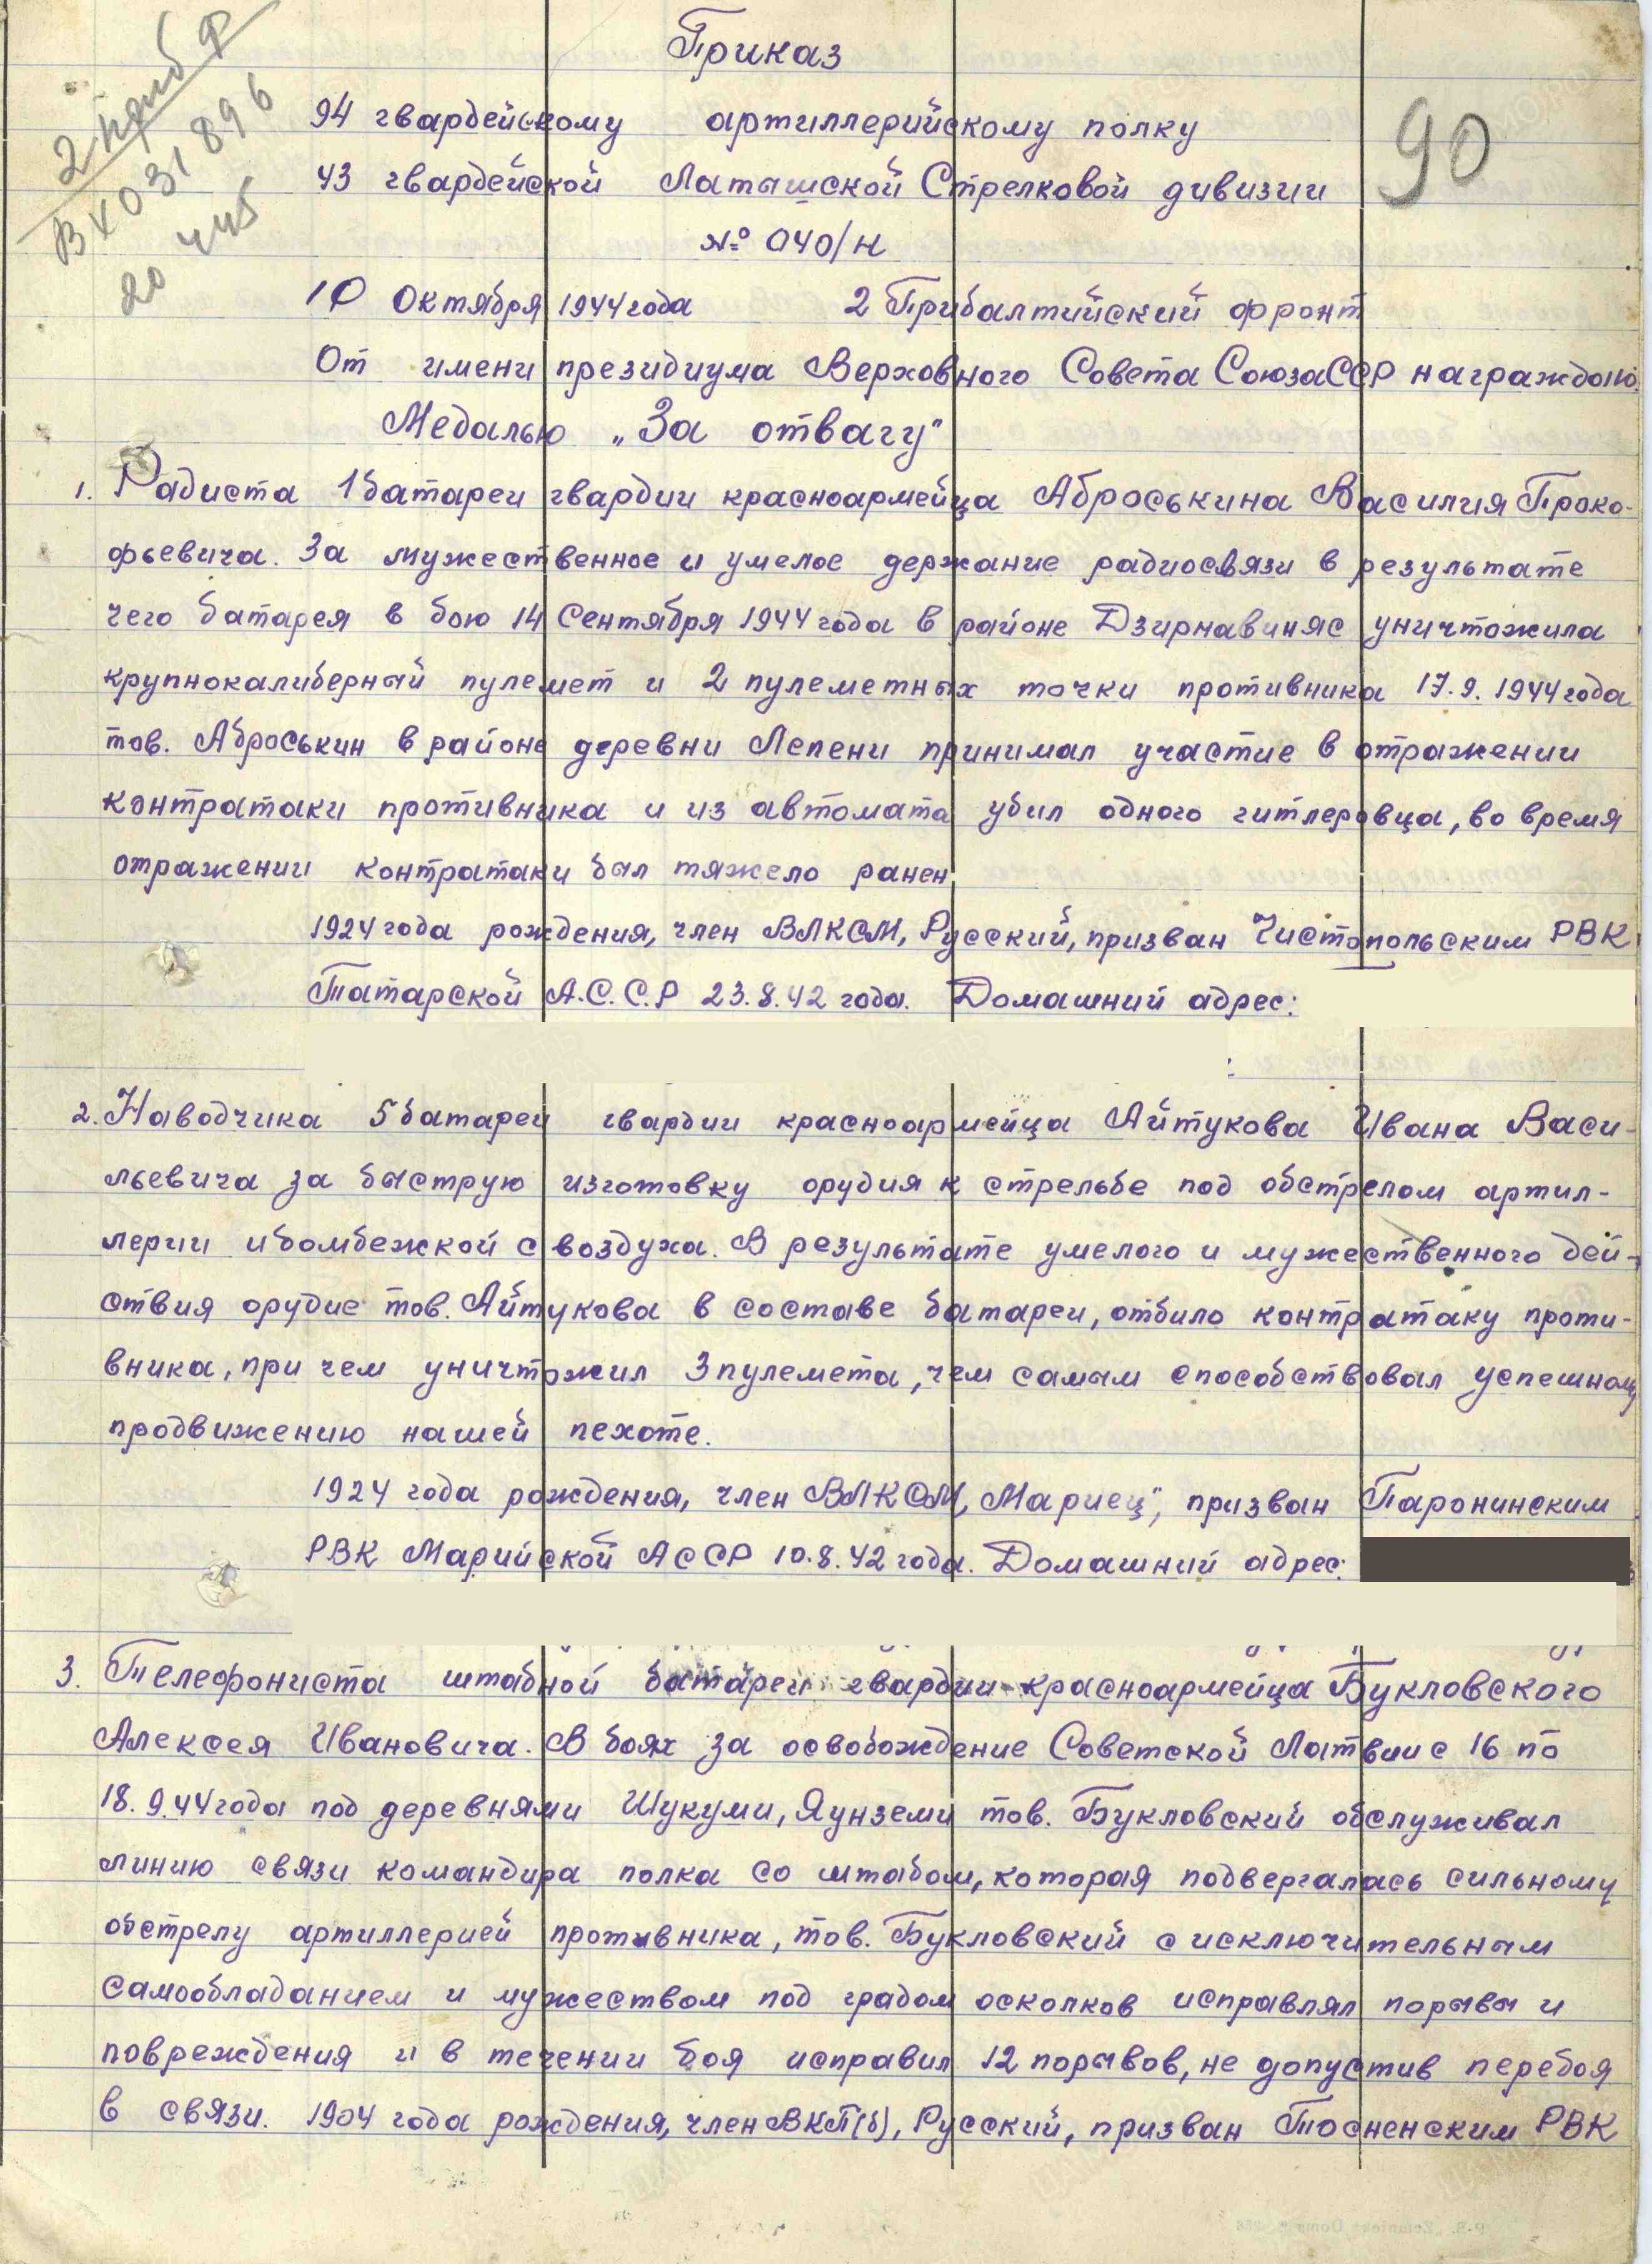 2 приб ф
Вх 031896
20 445
90
Приказ
94 гвардейскому артиллерийскому полку
43 гвардейской Латышской Стрелковой дивизии
№ 040/н
10 Октября 1944 года 2 Прибалтийский фронт
От имени президиума Верховного Совета Союза ССР награждаю:
Медалью „За отвагу"
1. Радиста 1 батареи гвардии красноармейца Аброськина Василия Проко-
фьевича. За мужественное и умелое держание радиосвязи в результате
чего батарея в бою 14 Сентября 1944 года в районе Дзирнавиняс уничтожила
крупнокалиберный пулемет и 2 пулеметных точки противника 17.9.1944 года
тов. Аброськин в районе деревни Лепени принимал участие в отражении
контратаки противника и из автомата убил одного гитлеровца, во время
отражении контратаки был тяжело ранен
1924 года рождения, член ВЛКСМ, Русский, призван Чистопольским РВК
Татарской А.С.С.Р 23.8.42 года. Домашний адрес:
2. Наводчика 5 батареи гвардии красноармейца Айтукова Ивана Васи-
льевича за быструю изготовку орудия к стрельбе под обстрелом артил-
лерии и бомбежкой с воздуха. В результате умелого и мужественного дей-
ствия орудие тов. Айтукова в составе батареи, отбило контратаку проти-
вника, при чем уничтожил 3 пулемета, чем самым способствовал успешному
продвижению нашей пехоте.
1924 года рождения, член ВЛКСМ, Мариец, призван Паронинским
РВК Марийской АССР 10.8.42 года. Домашний адрес:
3. Телефониста штабной батареи гвардии красноармейца Букловского
Алексея Ивановича. В боях за освобождение Советской Латвии с 16 по
18.9.44 года под деревнями Шукуми, Яунземи тов. Букловский обслуживал
линию связи командира полка со штабом, которая подвергалась сильному
обстрелу артиллерией противника, тов. Букловский с исключительным
самообладанием и мужеством под градом осколков исправлял порывы и
повреждения и в течении боя исправил 12 порывов, не допустив перебоя
в связи. 1904 года рождения, член ВКП(б), Русский, призван Тосненским РВК